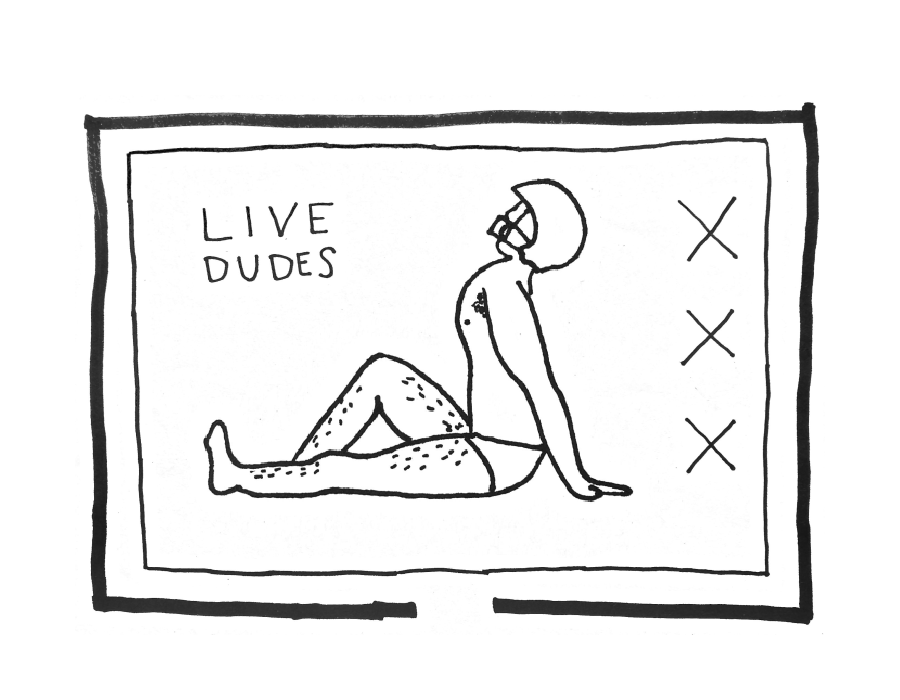 LIVE
DUDES
X
X
X